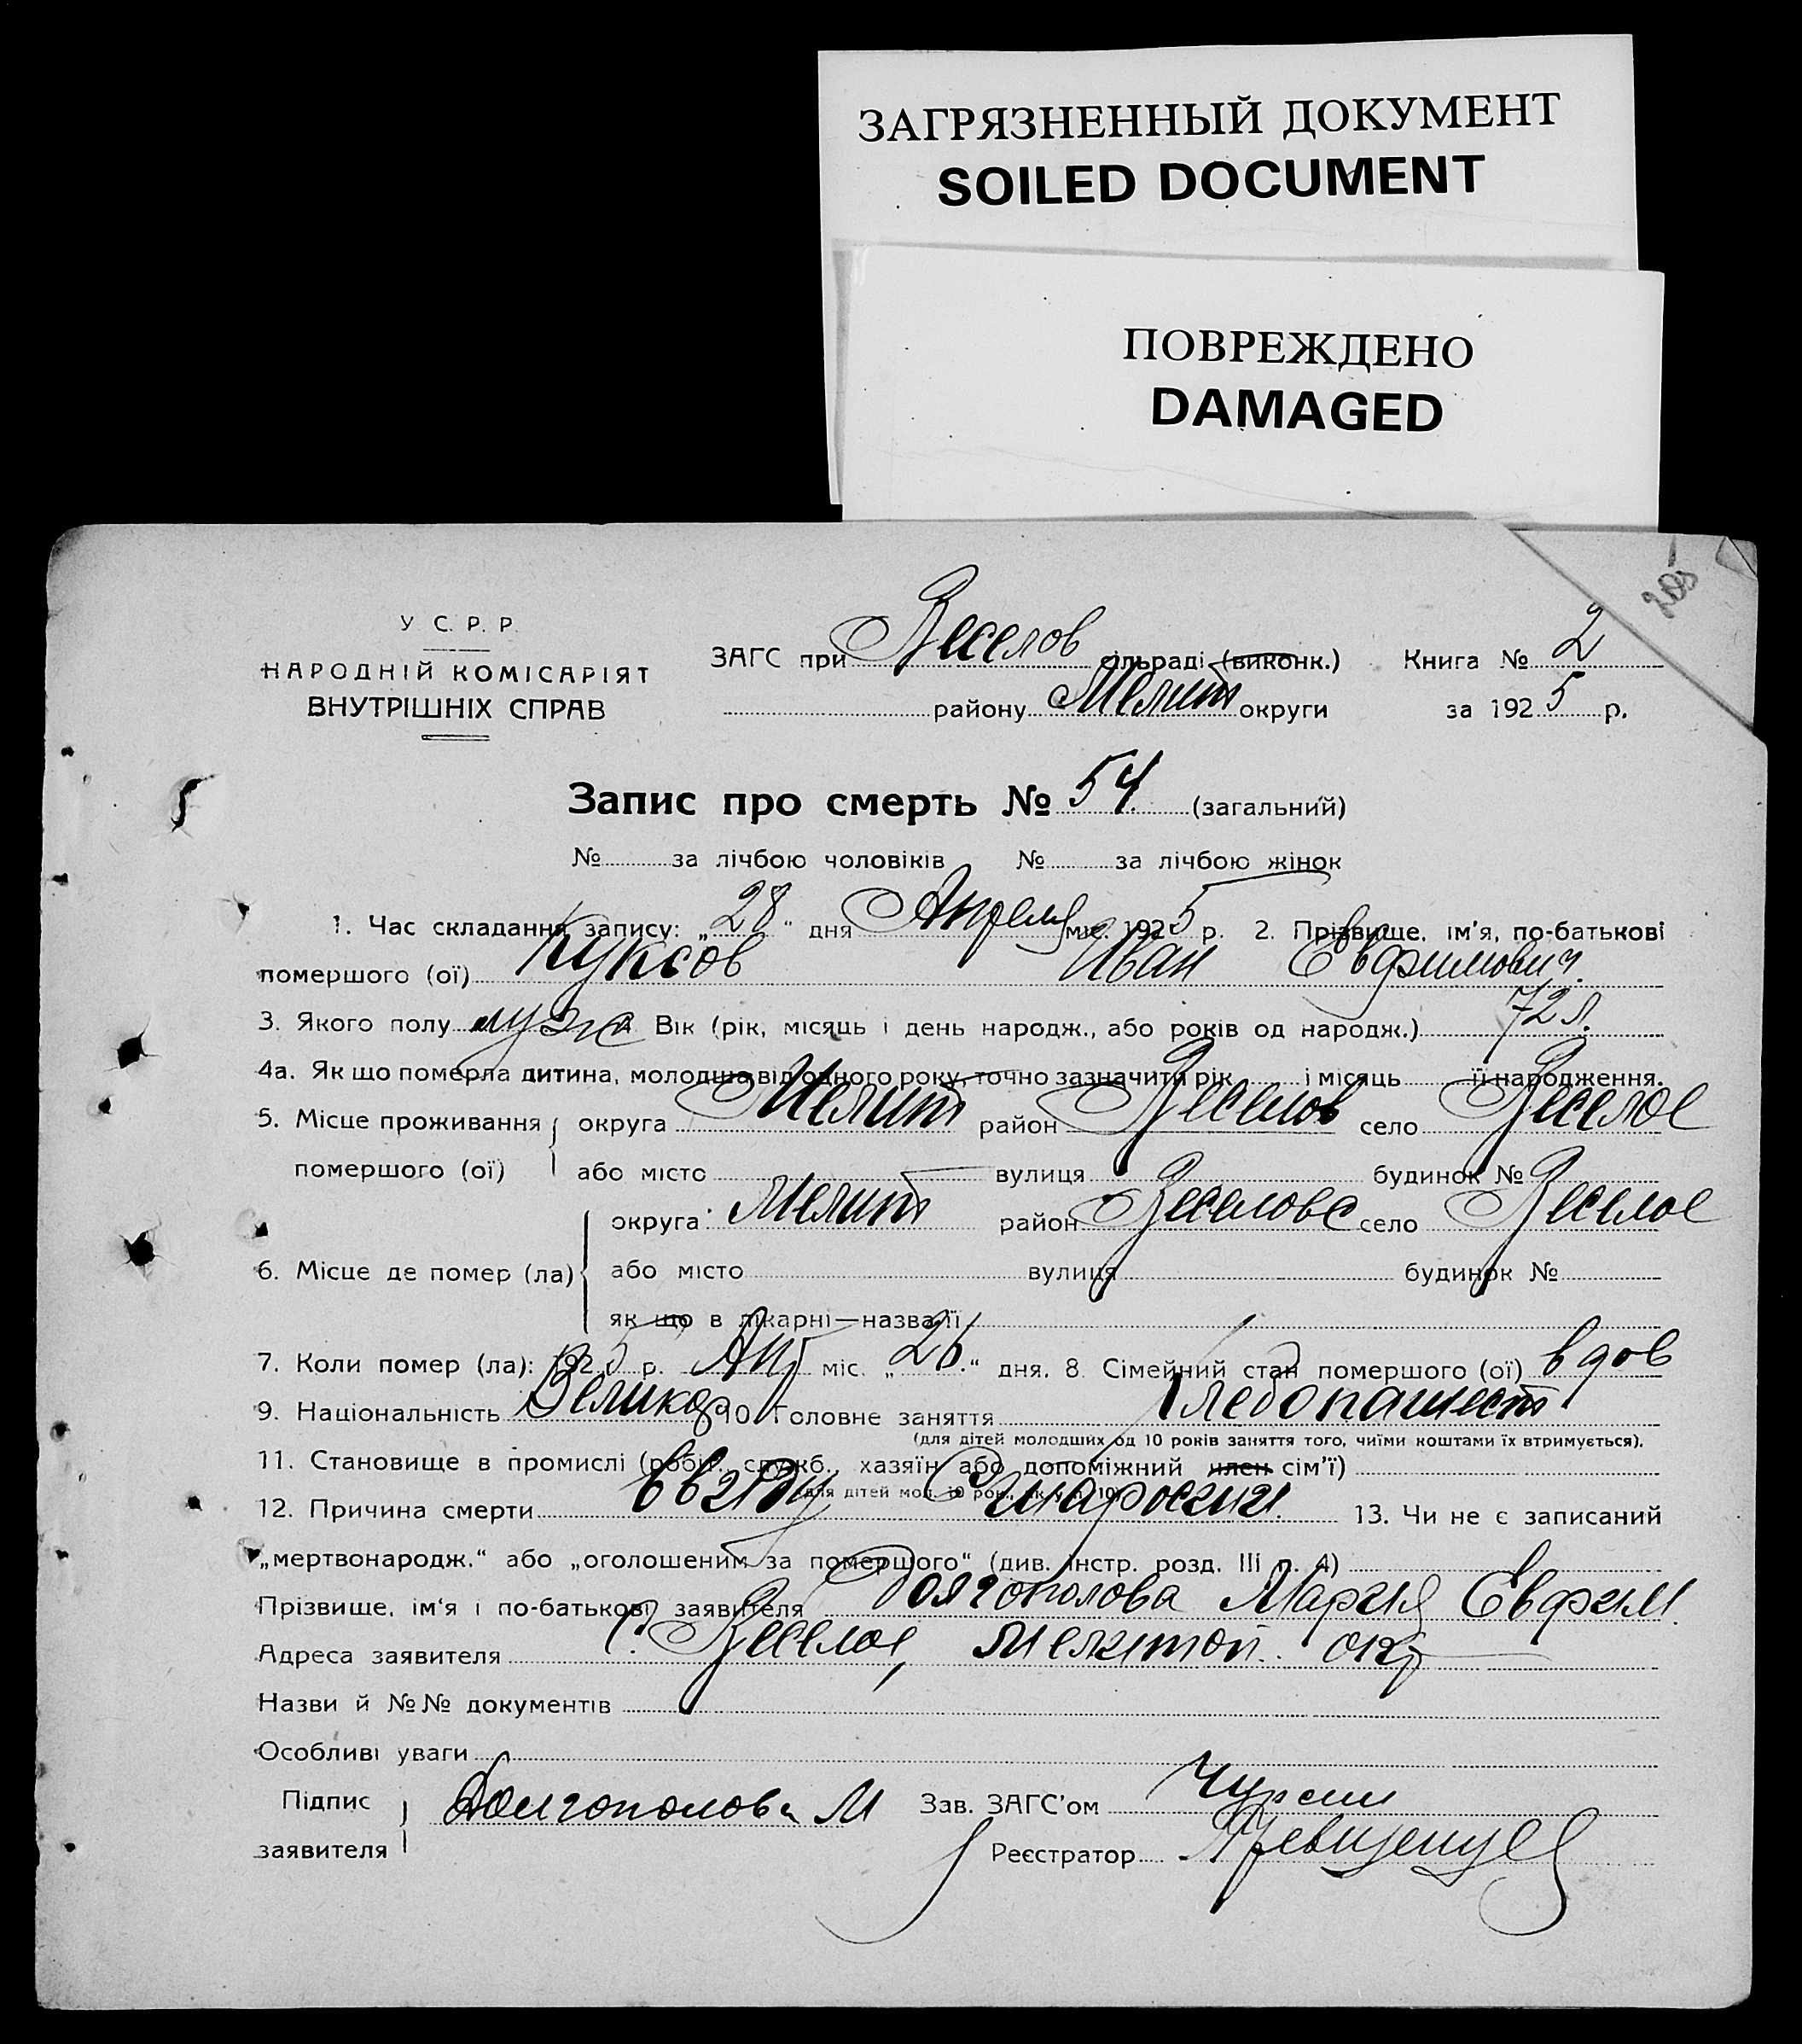 ЗАГРЯЗНЕННЫЙ ДОКУМЕНТ
SOILED DOCUMENT
ПОВРЕЖДЕНО
DAMAGED
205
У С. Р. Р.
НАРОДНІЙ КОМІСАРІЯТ
ВНУТРІШНІХ СПРАВ
ЗАГС при Веселов сільраді (виконк.) Книга № 2
району Мелит округи за 1925 р.
Запис про смерть № 54 (загальний)
№ за лічбою чоловіків № за лічбою жінок
1. Час складання запису: „28“ дня Апреля міс. 1925 р. 2. Прізвище, ім'я, по-батькові
помершого (ої) Куксов Иван Евфимович
3. Якого полу муж 4 Вік (рік, місяць і день народж., або років од народж.) 72 л.
4а. Як що померла дитина, молодша від одного року, точно зазначити рік і місяць її народження.
5. Місце проживання округа Мелит район Веселов село Веселое
помершого (ої) або місто вулиця будинок №
округа Мелит район Веселовс село Веселое
6. Місце де помер (ла) або місто вулиця будинок №
як що в лікарні—назва її
7. Коли помер (ла): 1925 р. Апр міс. „26.“ дня. 8 Сімейний стан помершого (ої) вдов
9. Національність Великор 10 Головне заняття Хлебопашест
(для дітей молодших од 10 років заняття того, чиїми коштами їх втримується).
11. Становище в промислі (робіт., служб., хазяїн або допоміжний член сім'ї)
(для дітей мол. 10 рок., як у п. 10)
12. Причина смерти ввиду Старости. 13. Чи не є записаний
„мертвонародж.“ або „оголошеним за помершого“ (див. інстр. розд. III п. 4)
Прізвище, ім'я і по-батькові заявителя Долгополова Мария Евфим.
Адреса заявителя С. Веселое, Мелитоп. окр
Назви й №№ документів
Особливі уваги
Підпис Долгополова М Зав. ЗАГС'ом
заявителя Реєстратор